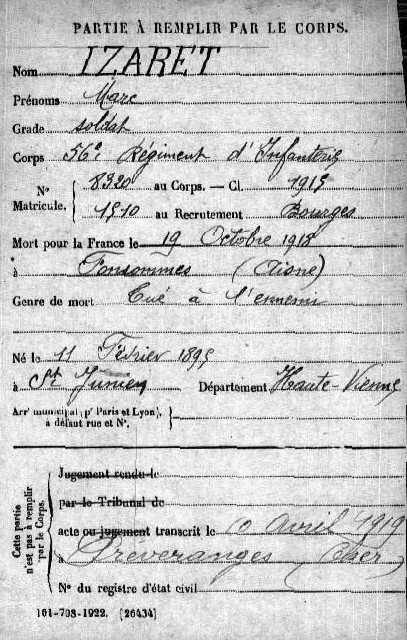 PARTIE À REMPLIR PAR LE CORPS.
Nom IZARET
Prénoms Marc
Grade soldat
Corps 56e Régiment d'Infanterie
N° Matricule. 8320 au Corps. — Cl. 1915
1510 au Recrutement Bourges
Mort pour la France le 19 Octobre 1918
à Fonsommes (Aisne)
Genre de mort Tué à l'ennemi
Né le 11 Février 1895
à St Junien Département Haute-Vienne
Arrt municipal (pr Paris et Lyon),
à défaut rue et N°.
Cette partie n'est pas à remplir par le Corps.
Jugement rendu le
par le Tribunal de
acte ou jugement transcrit le 10 avril 1919
à Préveranges (Cher)
N° du registre d'état civil
101-708-1922. [26434]